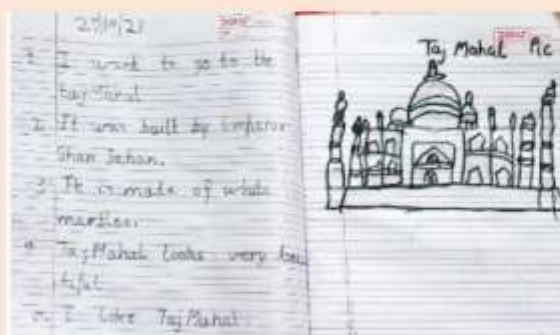 27/10/21
1. I want to go to the
taj Mahal
2. It was built by Emperor
Shah Jahan.
3. It is made of white
marbles.
4. Taj Mahal looks very beau
tiful
5. I like Taj Mahal
Taj Mahal Pic